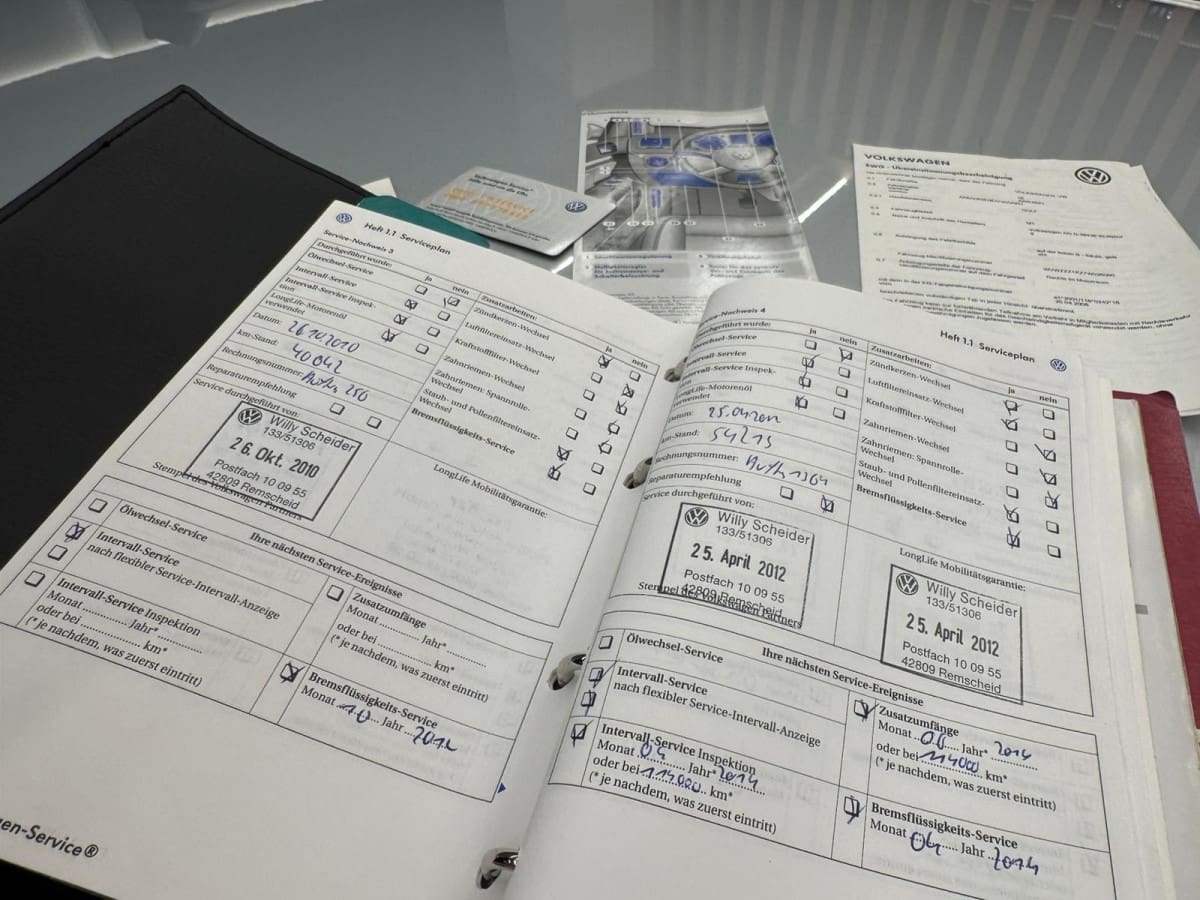 Heft 1.1 Serviceplan
Service-Nachweis 3
Durchgeführt wurde: ja nein
Ölwechsel-Service
Intervall-Service
Intervall-Service Inspek-
tion
LongLife-Motorenöl
verwendet
Datum: 26.10.2010
km-Stand: 40042
Rechnungsnummer:
Reparaturempfehlung
Service durchgeführt von:
Willy Scheider
133/51306
26. Okt. 2010
Postfach 10 09 55
42809 Remscheid
Stempel des Volkswagen Partners
Zusatzarbeiten: ja nein
Zündkerzen-Wechsel
Luftfiltereinsatz-Wechsel
Kraftstofffilter-Wechsel
Zahnriemen-Wechsel
Zahnriemen: Spannrolle-
Wechsel
Staub- und Pollenfiltereinsatz-
Wechsel
Bremsflüssigkeits-Service
LongLife Mobilitätsgarantie:
Ihre nächsten Service-Ereignisse
Ölwechsel-Service
Intervall-Service
nach flexibler Service-Intervall-Anzeige
Intervall-Service Inspektion
Monat ......... Jahr* .........
oder bei ................ km*
(* je nachdem, was zuerst eintritt)
Zusatzumfänge
Monat ......... Jahr* .........
oder bei ................ km*
(* je nachdem, was zuerst eintritt)
Bremsflüssigkeits-Service
Monat 10 Jahr 2012
en-Service®
Heft 1.1 Serviceplan
Service-Nachweis 4
Durchgeführt wurde: ja nein
Ölwechsel-Service
Intervall-Service
Intervall-Service Inspek-
tion
LongLife-Motorenöl
verwendet
Datum: 25.04.2012
km-Stand: 54215
Rechnungsnummer:
Reparaturempfehlung
Service durchgeführt von:
Willy Scheider
133/51306
25. April 2012
Postfach 10 09 55
42809 Remscheid
Stempel des Volkswagen Partners
Zusatzarbeiten: ja nein
Zündkerzen-Wechsel
Luftfiltereinsatz-Wechsel
Kraftstofffilter-Wechsel
Zahnriemen-Wechsel
Zahnriemen: Spannrolle-
Wechsel
Staub- und Pollenfiltereinsatz-
Wechsel
Bremsflüssigkeits-Service
LongLife Mobilitätsgarantie:
Willy Scheider
133/51306
25. April 2012
Postfach 10 09 55
42809 Remscheid
Ihre nächsten Service-Ereignisse
Ölwechsel-Service
Intervall-Service
nach flexibler Service-Intervall-Anzeige
Intervall-Service Inspektion
Monat 04 Jahr* 2014
oder bei 114000 km*
(* je nachdem, was zuerst eintritt)
Zusatzumfänge
Monat Jahr* 2014
oder bei 114000 km*
(* je nachdem, was zuerst eintritt)
Bremsflüssigkeits-Service
Monat 04 Jahr 2014
VOLKSWAGEN
EWG - Übereinstimmungsbescheinigung